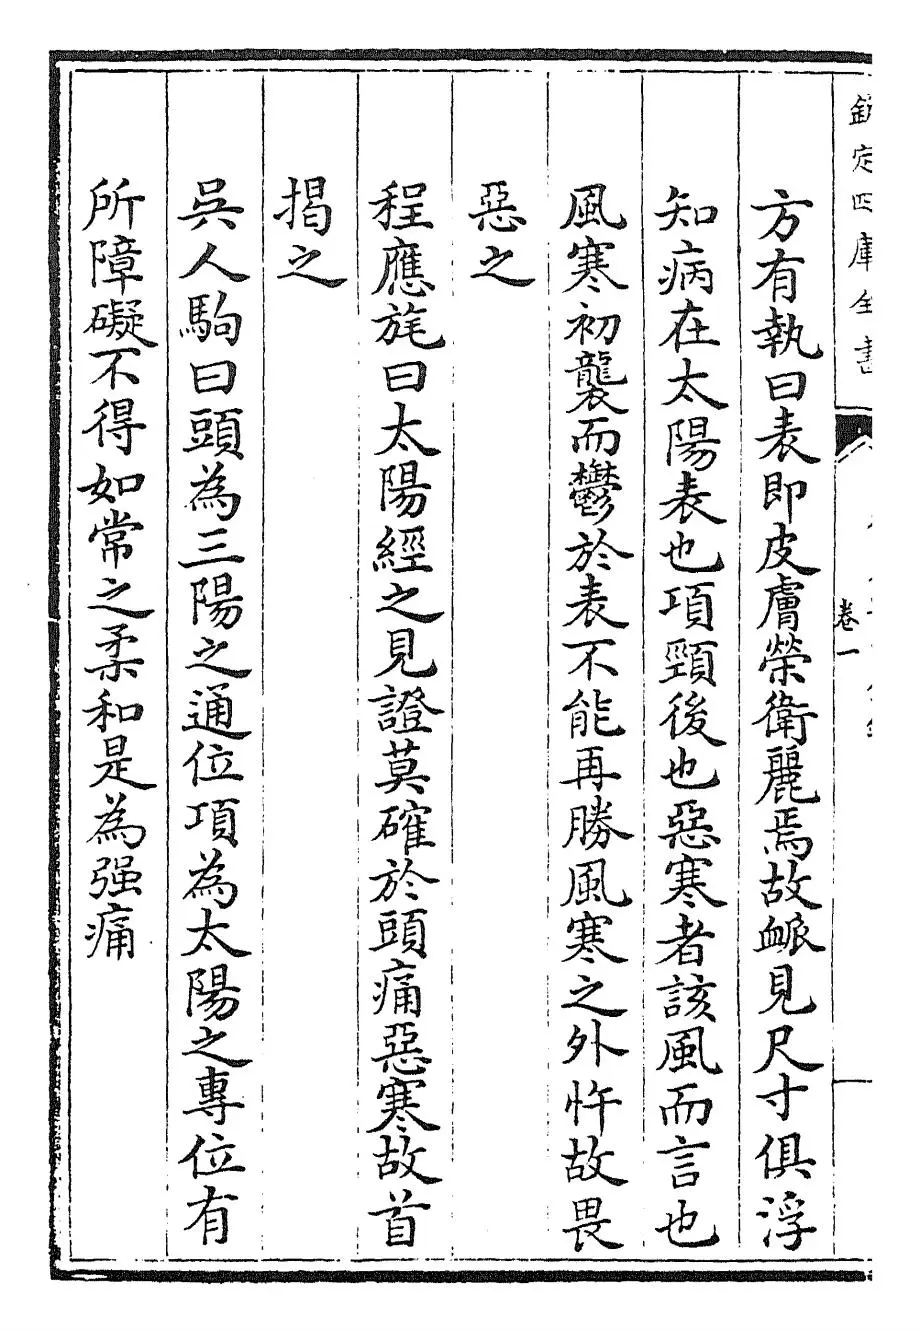 欽定四庫全書
卷一
方有執曰表即皮膚榮衛麗焉故䘑見尺寸俱浮
知病在太陽表也項頸後也惡寒者該風而言也
風寒初襲而鬱於表不能再勝風寒之外忤故畏
惡之
程應旄曰太陽經之見證莫確於頭痛惡寒故首
揭之
吳人駒曰頭為三陽之通位項為太陽之專位有
所障礙不得如常之柔和是為强痛